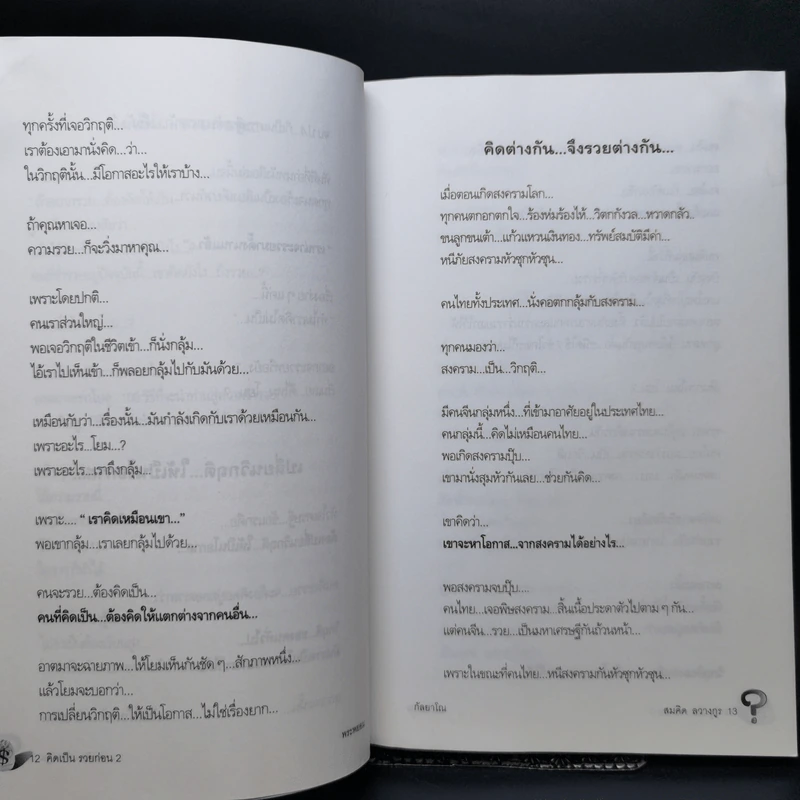 ทุกครั้งที่เจอวิกฤติ...
เราต้องเอามานั่งคิด...ว่า...
ในวิกฤตินั้น...มีโอกาสอะไรให้เราบ้าง...
ถ้าคุณหาเจอ...
ความรวย...ก็จะวิ่งมาหาคุณ...
เพราะโดยปกติ...
คนเราส่วนใหญ่...
พอเจอวิกฤติในชีวิตเข้า...ก็นั่งกลุ้ม...
ไอ้เราไปเห็นเข้า...ก็พลอยกลุ้มไปกับมันด้วย...
เหมือนกับว่า...เรื่องนั้น...มันกำลังเกิดกับเราด้วยเหมือนกัน...
เพราะอะไร...โยม...?
เพราะอะไร...เราถึงกลุ้ม...
เพราะ.... “ เราคิดเหมือนเขา...”
พอเขากลุ้ม...เราเลยกลุ้มไปด้วย...
คนจะรวย...ต้องคิดเป็น...
คนที่คิดเป็น...ต้องคิดให้แตกต่างจากคนอื่น...
อาตมาจะฉายภาพ...ให้โยมเห็นกันชัด ๆ...สักภาพหนึ่ง...
แล้วโยมจะบอกว่า...
การเปลี่ยนวิกฤติ...ให้เป็นโอกาส...ไม่ใช่เรื่องยาก...
12 คิดเป็น รวยก่อน 2
คิดต่างกัน...จึงรวยต่างกัน...
เมื่อตอนเกิดสงครามโลก...
ทุกคนตกอกตกใจ...ร้องห่มร้องไห้...วิตกกังวล...หวาดกลัว..
ขนลูกขนเต้า...แก้วแหวนเงินทอง...ทรัพย์สมบัติมีค่า...
หนีภัยสงครามหัวซุกหัวซุน...
คนไทยทั้งประเทศ...นั่งคอตกกลุ้มกับสงคราม...
ทุกคนมองว่า...
สงคราม...เป็น...วิกฤติ...
มีคนจีนกลุ่มหนึ่ง...ที่เข้ามาอาศัยอยู่ในประเทศไทย...
คนกลุ่มนี้...คิดไม่เหมือนคนไทย...
พอเกิดสงครามปุ๊บ...
เขามานั่งสุมหัวกันเลย...ช่วยกันคิด...
เขาคิดว่า...
เขาจะหาโอกาส...จากสงครามได้อย่างไร...
พอสงครามจบปุ๊บ...
คนไทย...เจอพิษสงคราม...สิ้นเนื้อประดาตัวไปตาม ๆ กัน...
แต่คนจีน...รวย...เป็นมหาเศรษฐีกันถ้วนหน้า...
เพราะในขณะที่คนไทย...หนีสงครามกันหัวซุกหัวซุน...
กัลยาโณ
สมคิด ลวางกูร 13